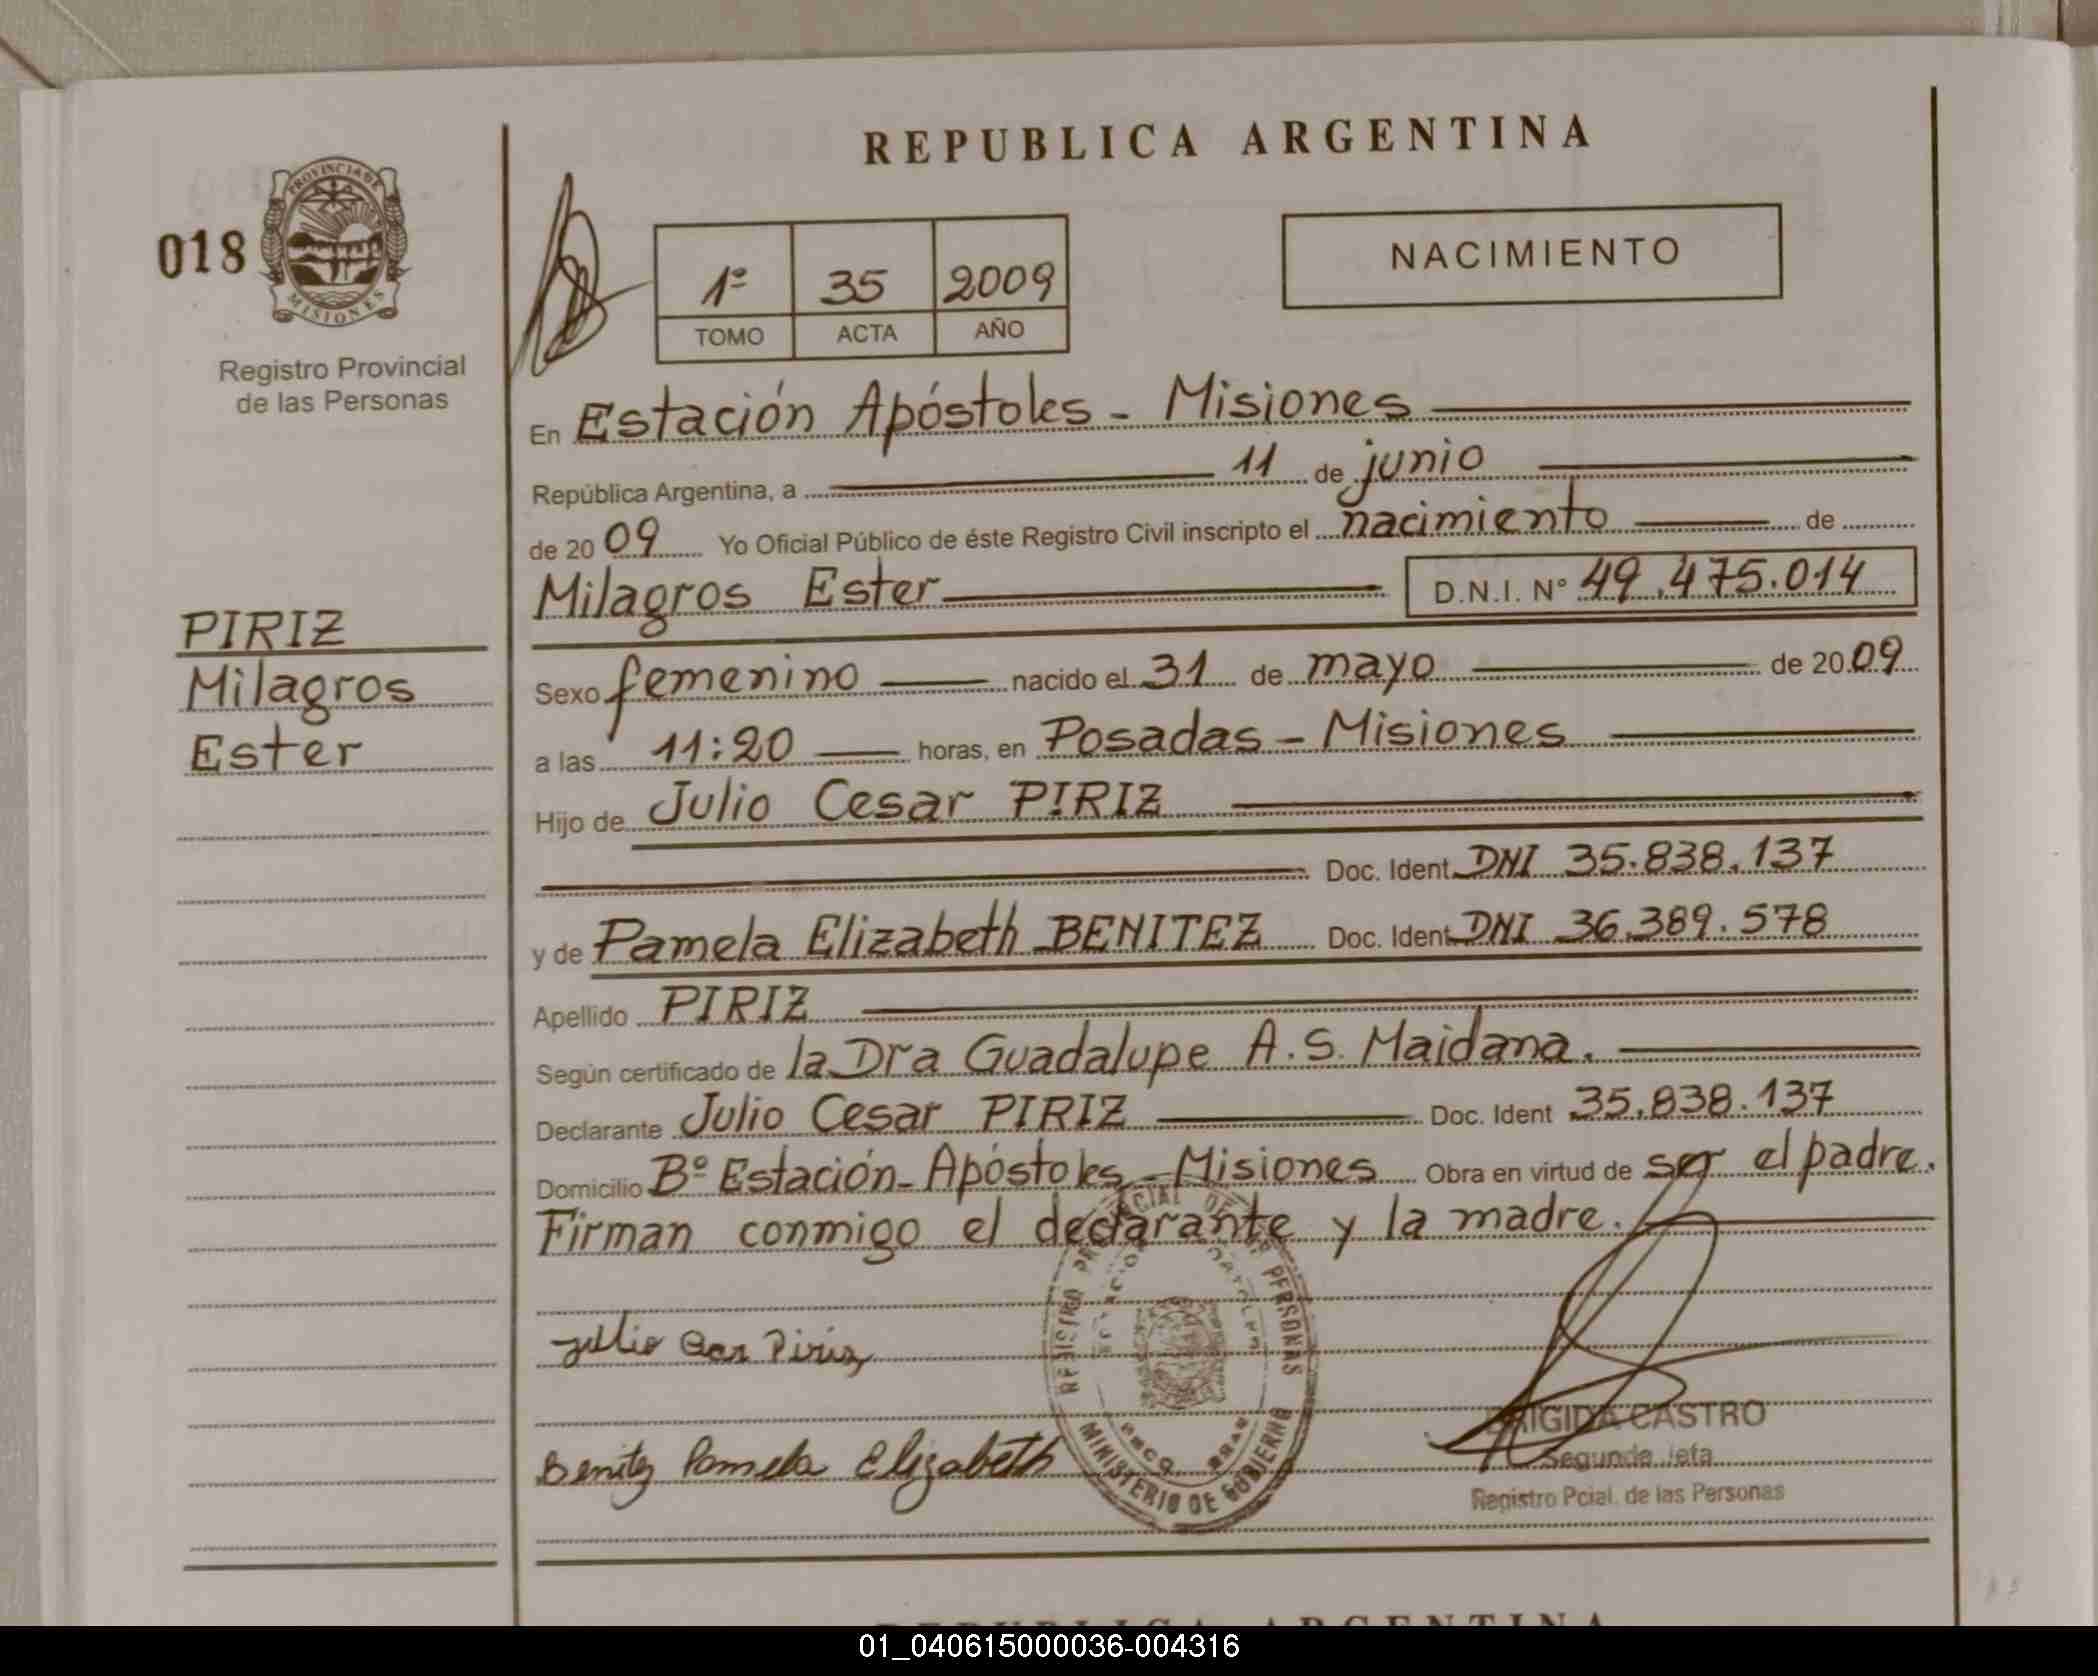 REPUBLICA ARGENTINA
018
PROVINCIA DE
MISIONES
Registro Provincial
de las Personas
1º 35 2009
TOMO ACTA AÑO
NACIMIENTO
En Estación Apóstoles - Misiones
República Argentina, a 11 de junio
de 2009 Yo Oficial Público de éste Registro Civil inscripto el nacimiento de
Milagros Ester D.N.I. Nº 49.475.014
PIRIZ
Milagros
Ester
Sexo femenino nacido el 31 de mayo de 2009
a las 11:20 horas, en Posadas - Misiones
Hijo de Julio Cesar PIRIZ
Doc. Ident DNI 35.838.137
y de Pamela Elizabeth BENITEZ Doc. Ident DNI 36.389.578
Apellido PIRIZ
Según certificado de la Dra Guadalupe A.S. Maidana.
Declarante Julio Cesar PIRIZ Doc. Ident 35.838.137
Domicilio Bº Estación - Apóstoles - Misiones Obra en virtud de ser el padre.
Firman conmigo el declarante y la madre.
REGISTRO PROVINCIAL DE LAS PERSONAS
MINISTERIO DE GOBIERNO
Julio Piriz
Benitez Pamela Elizabeth
BRIGIDA CASTRO
Segunda Jefa
Registro Pcial. de las Personas
REPUBLICA ARGENTINA
01_040615000036-004316